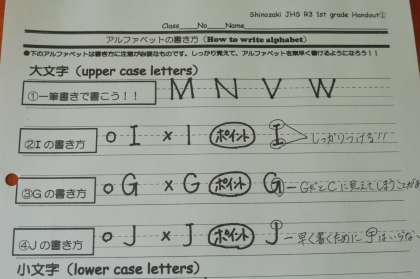 Shinozaki JHS R3 1st grade Handout①
Class____No____Name__________
アルファベットの書き方 (How to write alphabet)
●下のアルファベットは書き方に注意が必要なものです。しっかり覚えて、アルファベットを素早く書けるようになろう！！
大文字 (upper case letters)
①一筆書きで書こう！！ M N V W
②Iの書き方 ○ I × l ポイント I しっかりつける!!
③Gの書き方 ○ G × G ポイント G − GがCに見えてしまうことが
④Jの書き方 ○ J × J ポイント J − 早く書くために
小文字 (lower case letters)